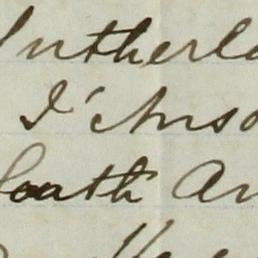 Sutherla
I' Anso
South An